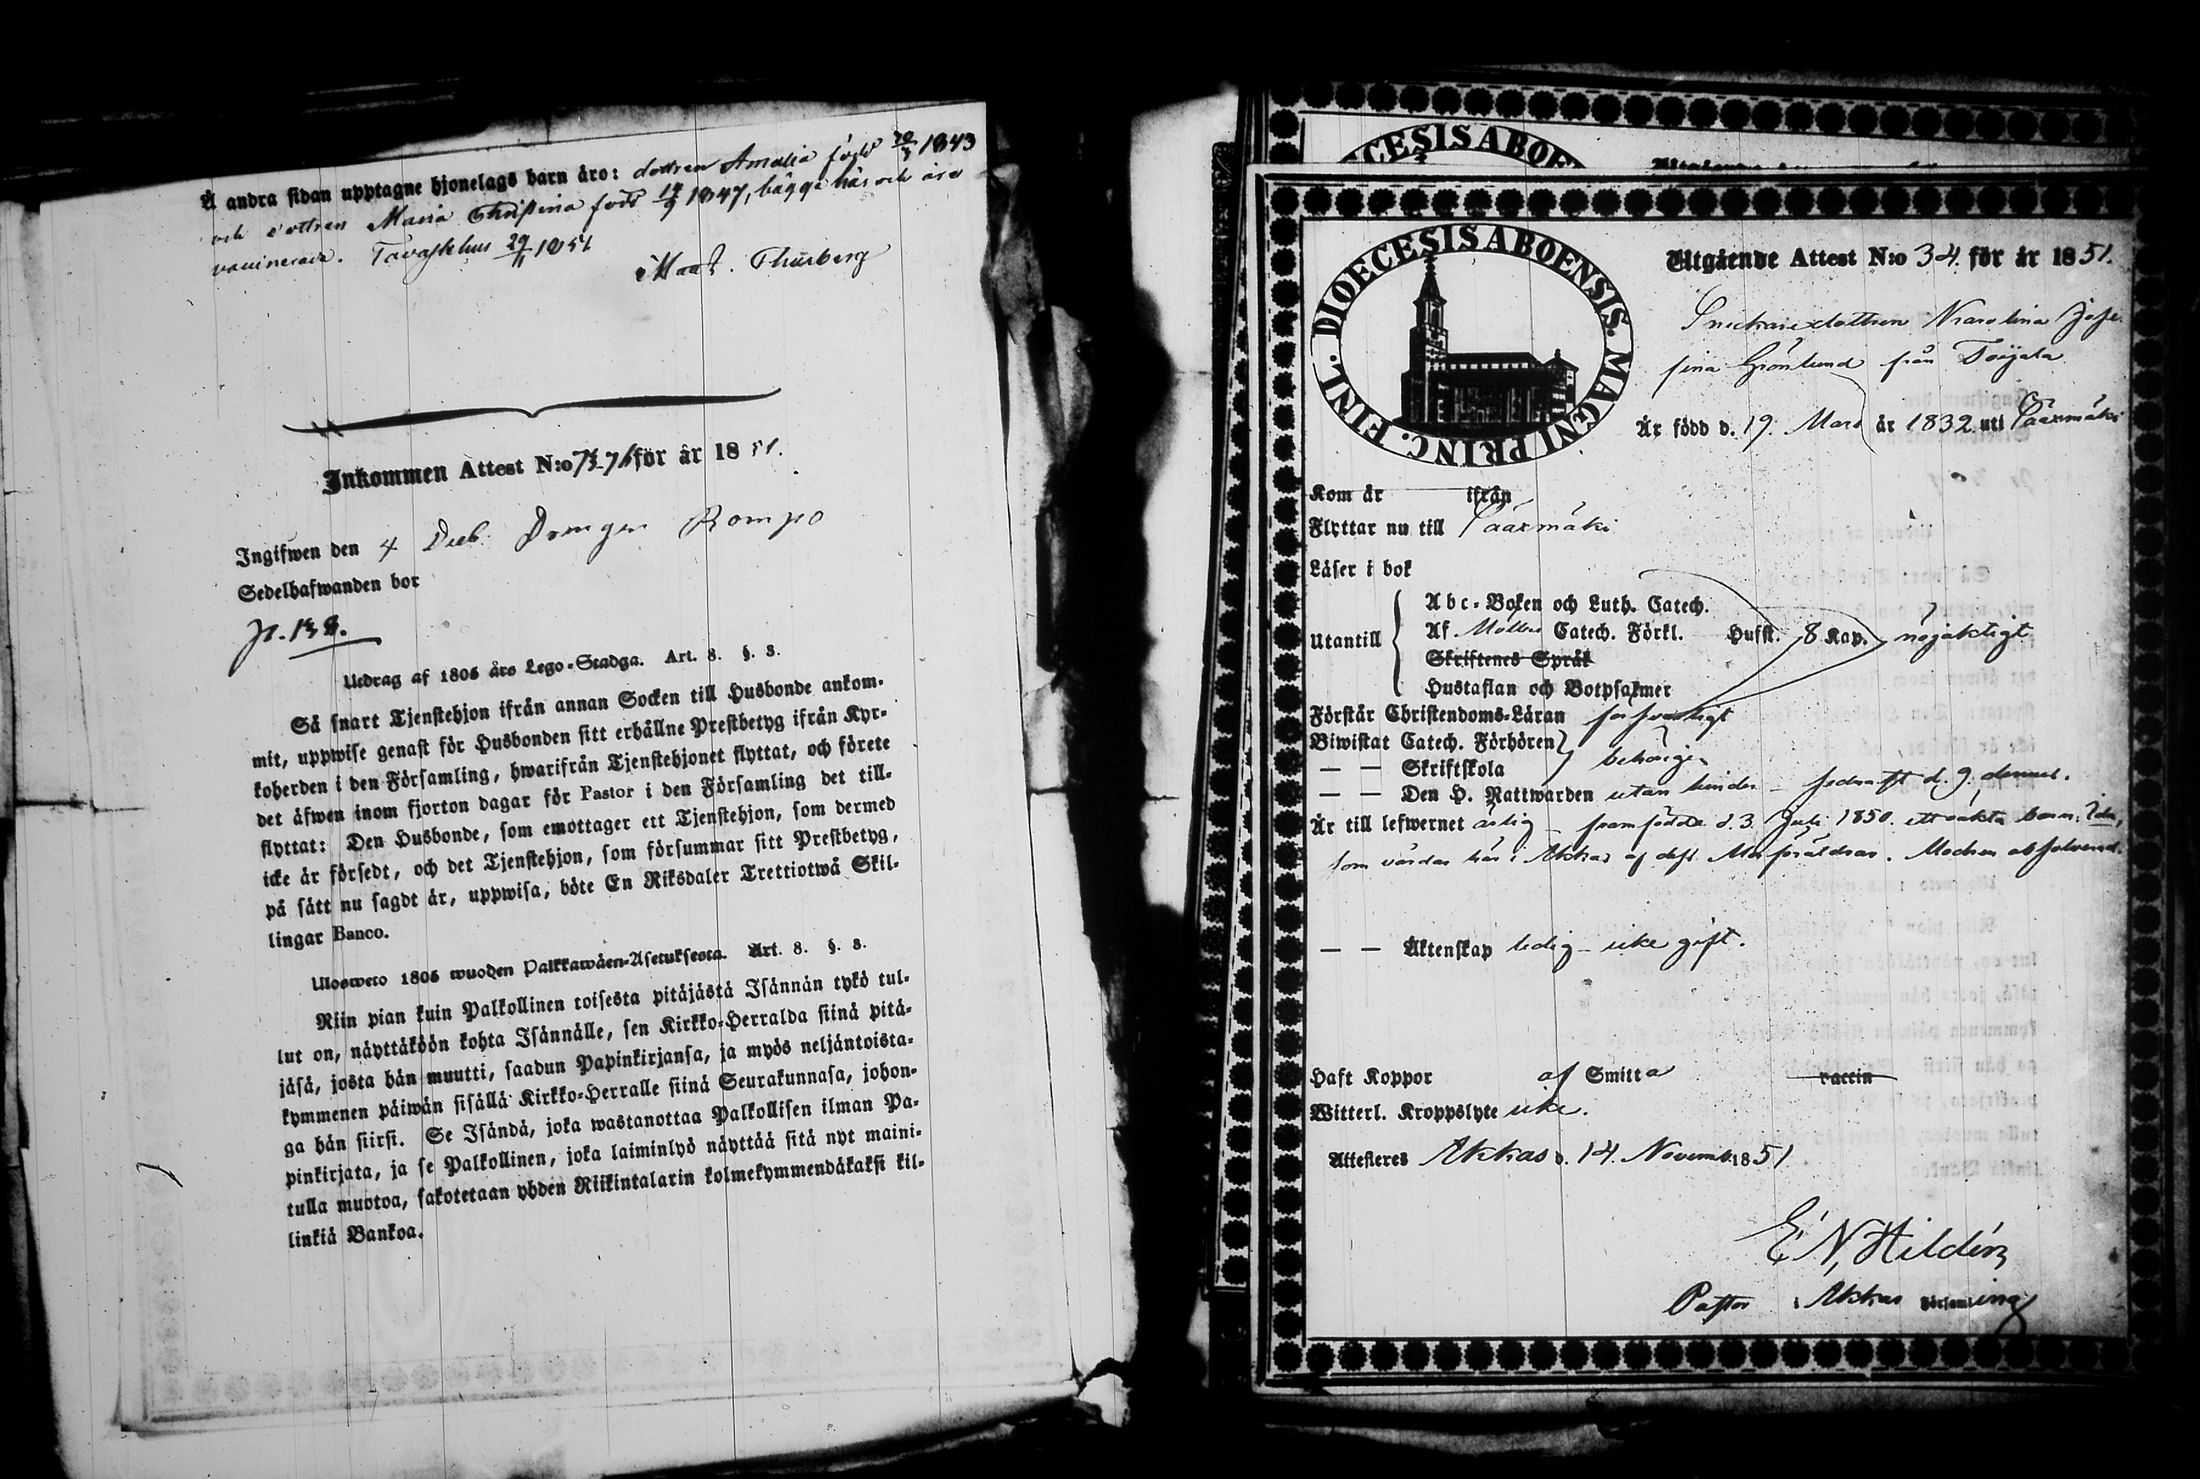 Å andra sidan upptagne hjonelags barn äro: dottren Amalia född 20/3 1843
och dottren Maria Christina född 1847, bägge här och äro
vaccinerade. Tavastehus 29/11 1851
Thurberg
Inkommen Attest N:o 75-76 för år 1851.
Ingifwen den 4 Decb. Drengen Rompo
Sedelhafwanden bor
p. 138.
Utdrag af 1805 års Lego-Stadga. Art. 8. §. 8.
Så snart Tjenstehjon ifrån annan Socken till Husbonde ankom-
mit, uppwise genast för Husbonden sitt erhållne Prestbetyg ifrån Kyr-
koherden i den Församling, hwarifrån Tjenstehjonet flyttat, och förete
det äfwen inom fjorton dagar för Pastor i den Församling det till-
flyttat: Den Husbonde, som emottager ett Tjenstehjon, som dermed
icke är försedt, och det Tjenstehjon, som försummar sitt Prestbetyg,
på sätt nu sagdt är, uppwisa, böte En Riksdaler Trettiotwå Skil-
lingar Banco.
Ulosweto 1805 wuoden Palkkawäen-Asetuksesta. Art. 8. §. 8.
Niin pian kuin Palkollinen toisesta pitäjästä Isännän tykö tul-
lut on, näyttäköön kohta Isännälle, sen Kirkko-Herralda siinä pitä-
jäsä, josta hän muutti, saadun Papinkirjansa, ja myös neljäntoista-
kymmenen päiwän sisällä Kirkko-Herralle siinä Seurakunnasa, johon-
ga hän siirsi. Se Isändä, joka wastanottaa Palkollisen ilman Pa-
pinkirjata, ja se Palkollinen, joka laiminlyö näyttää sitä nyt maini-
tulla muotoa, sakotetaan yhden Riikintalarin kolmekymmendäkaksi kil-
linkiä Bankoa.
DIOECESIS ABOEN
FINL. DIOECESIS ABOENSIS. MAGNI PRINC.
Utgående Attest N:o 34. för år 1851.
Snickaredottren Karolina Jose-
fina Grönlund från Toijala
Är född d. 19. Mars år 1832 uti Sääxmäki
Kom år ifrån
Flyttar nu till Sääxmäki
Läser i bok
Abc-Boken och Luth. Catech.
Utantill Af Möllers Catech. Förkl. Hufst. 8 Kap. nöjaktigt
Skriftenes Språk
Hustaflan och Botpsalmer
Förstår Christendoms-Läran försvarligt
Biwistat Catech. Förhören
— — Skriftskola behörigen
— — Den H. Nattwarden utan hinder – sednast d. 9. dennes.
Är till lefwernet ärlig – framfödde d. 3. Juli 1850. ett oäkta barn: Ida,
som vårdas här i Akkas af dess Morföräldrar. Modren absolverad.
— — Äktenskap ledig – icke gift.
Haft Koppor af Smitta vaccin
Witterl. Kroppslyte icke.
Attesteres Akkas d. 14. Novemb. 1851
E. N. Hildén
Pastor i Akkas Församling